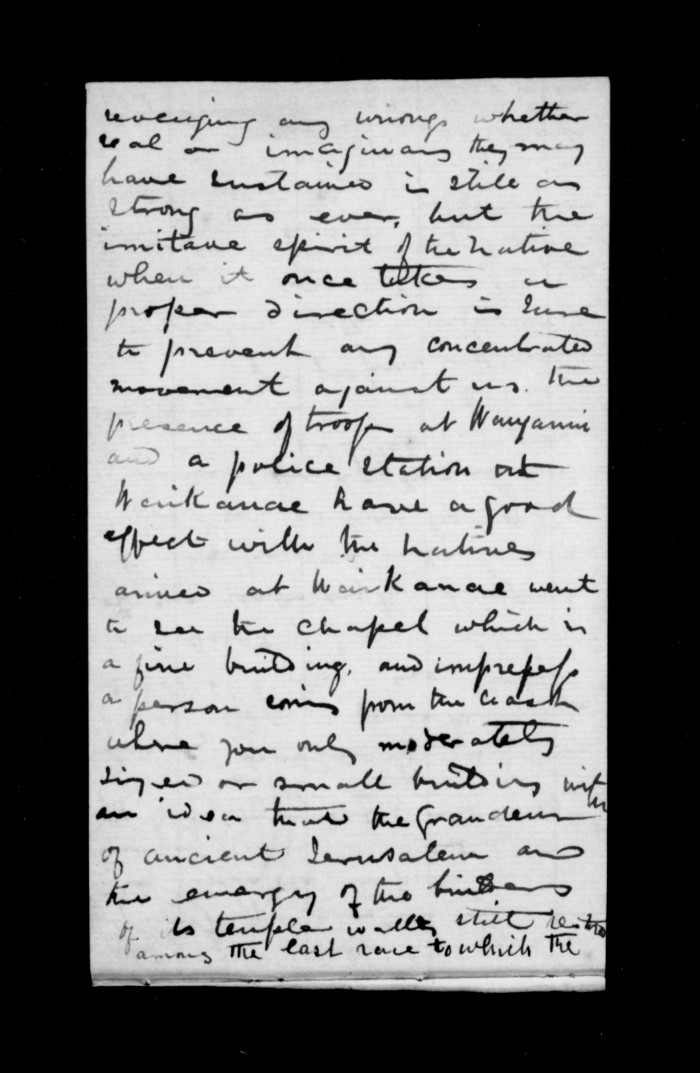 revenging any wrongs whether
real or imaginary they may
have sustained is still as
strong as ever, but the
imitave spirit of the Native
when it once takes a
proper direction is sure
to prevent any concentrated
movement against us. The
presence of troops at Wanganui
and a police station at
Waikanae have a good
effect with the natives
arrived at Waikanae went
to see the chapel which is
a fine building, and impresses
a person coming from the coast
where you only moderately
sized or small building with
an idea that the Grandeur
of ancient Jerusalem and
the energy of the builders
of its temple walls still
among the last race to which the